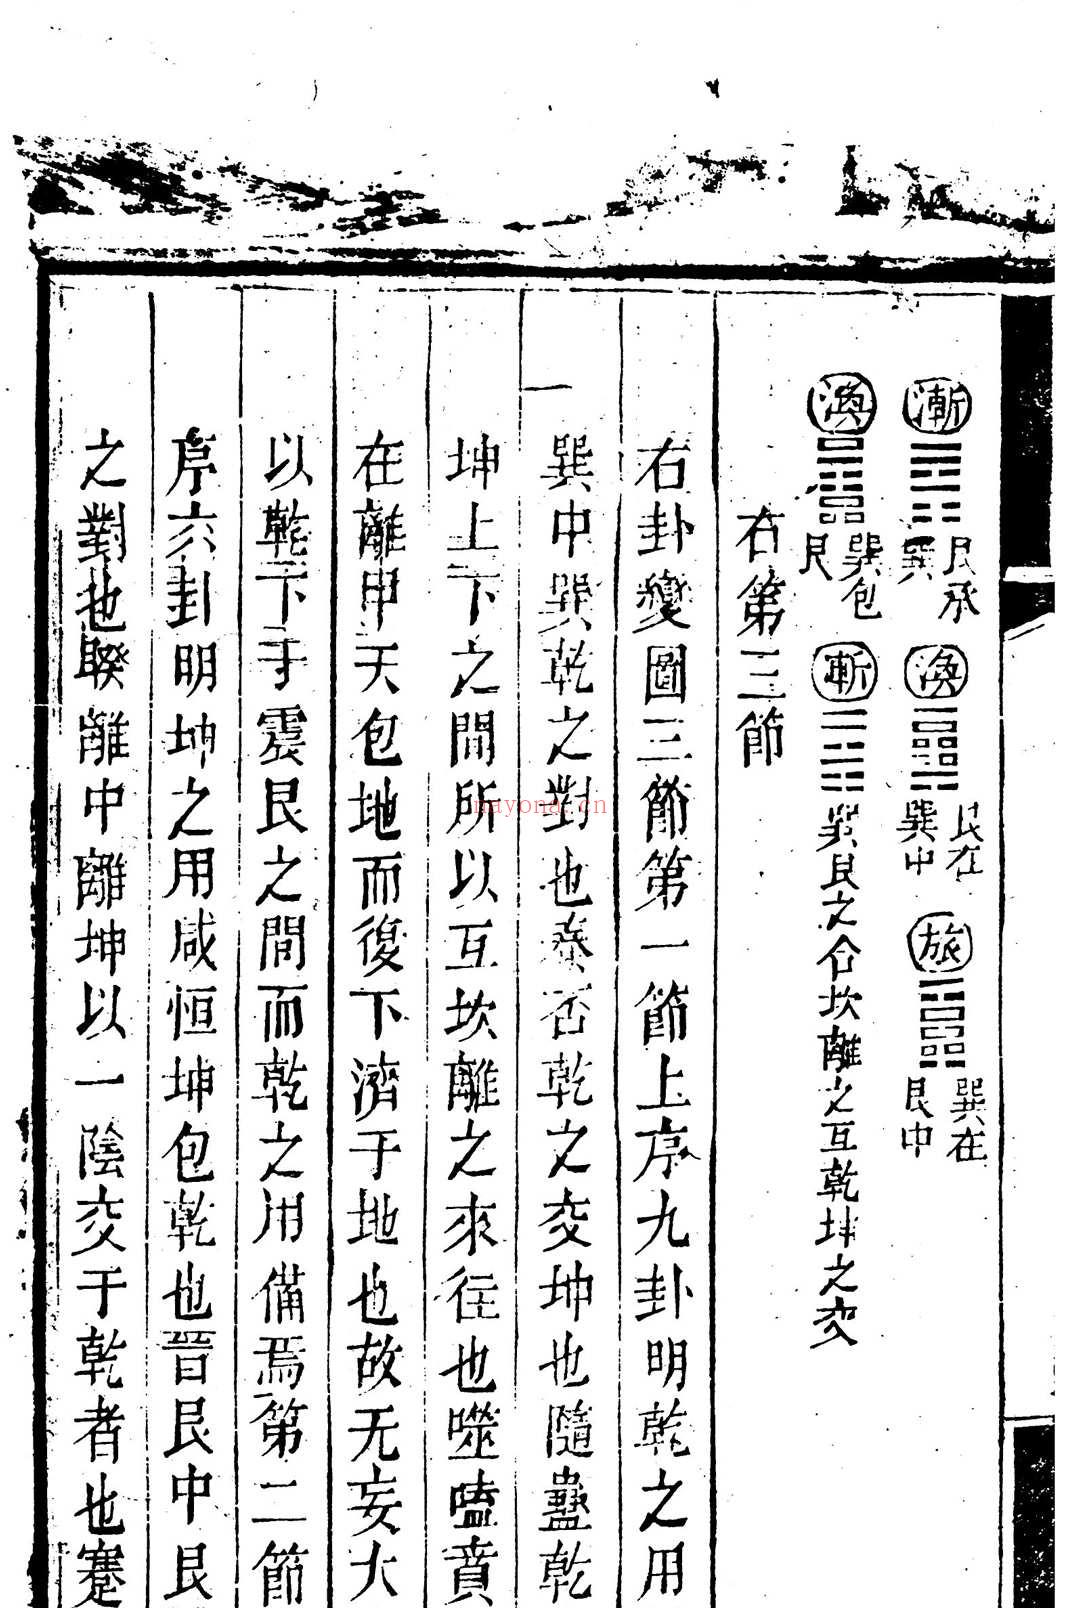 漸 艮承巽 渙 艮在巽中 旅 巽在艮中
渙 巽包艮 漸 巽艮之合坎離之互乾坤之交
右第三節
右卦變圖三節第一節上序九卦明乾之用
巽中巽乾之對也泰否乾之交坤也隨蠱乾
坤上下之間所以互坎離之來往也噬嗑賁
在離中天包地而復下濟于地也故无妄大
以乾下于震艮之間而乾之用備焉第二節
序六卦明坤之用咸恒坤包乾也晉艮中艮
之對也睽離中離坤以一陰交于乾者也蹇
nayona.cn